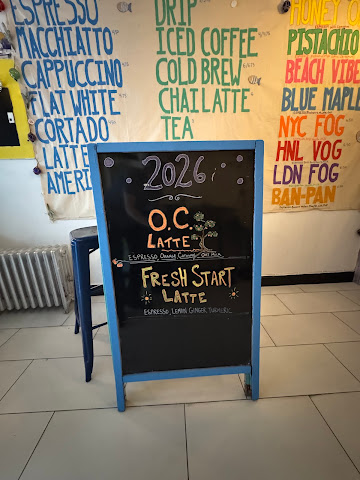 ESPRESSO
MACCHIATO
CAPPUCCINO
FLAT WHITE
CORTADO
LATTE
AMERI
DRIP
ICED COFFEE
COLD BREW
CHAI LATTE
TEA
HONEY
PISTACHIO
BEACH VIBE
BLUE MAPLE
NYC FOG
HNL VOG
LDN FOG
BAN-PAN
2026
O.C.
LATTE
ESPRESSO, ORANGE
FRESH START
LATTE
ESPRESSO, LEMON, GINGER, TURMERIC